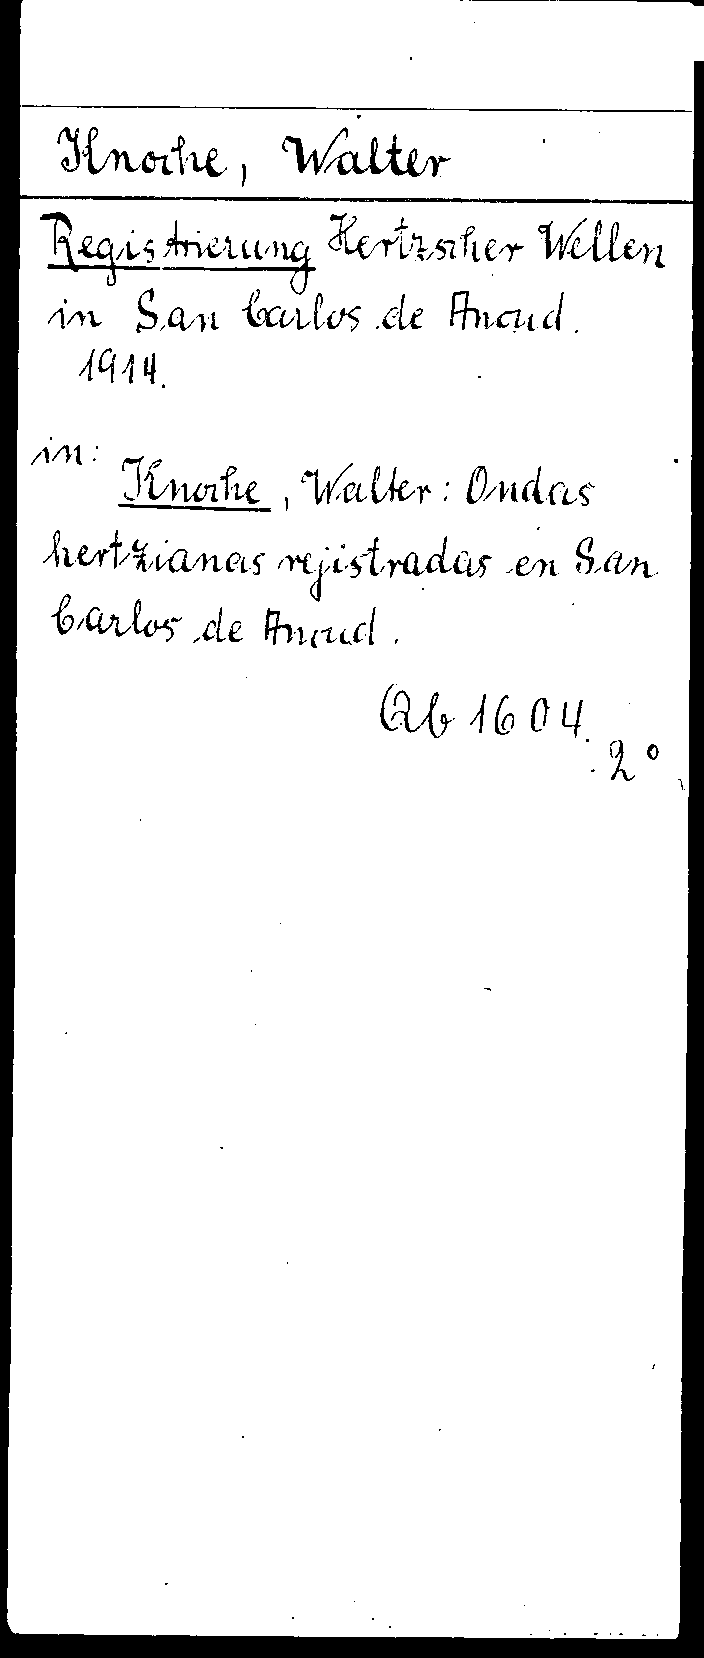 Knoche, Walter
Registrierung Hertzscher Wellen
in San Carlos de Ancud.
1914.
in:
Knoche, Walter: Ondas
hertzianas rejistradas en San
Carlos de Ancud.
Qb 1604.
2°